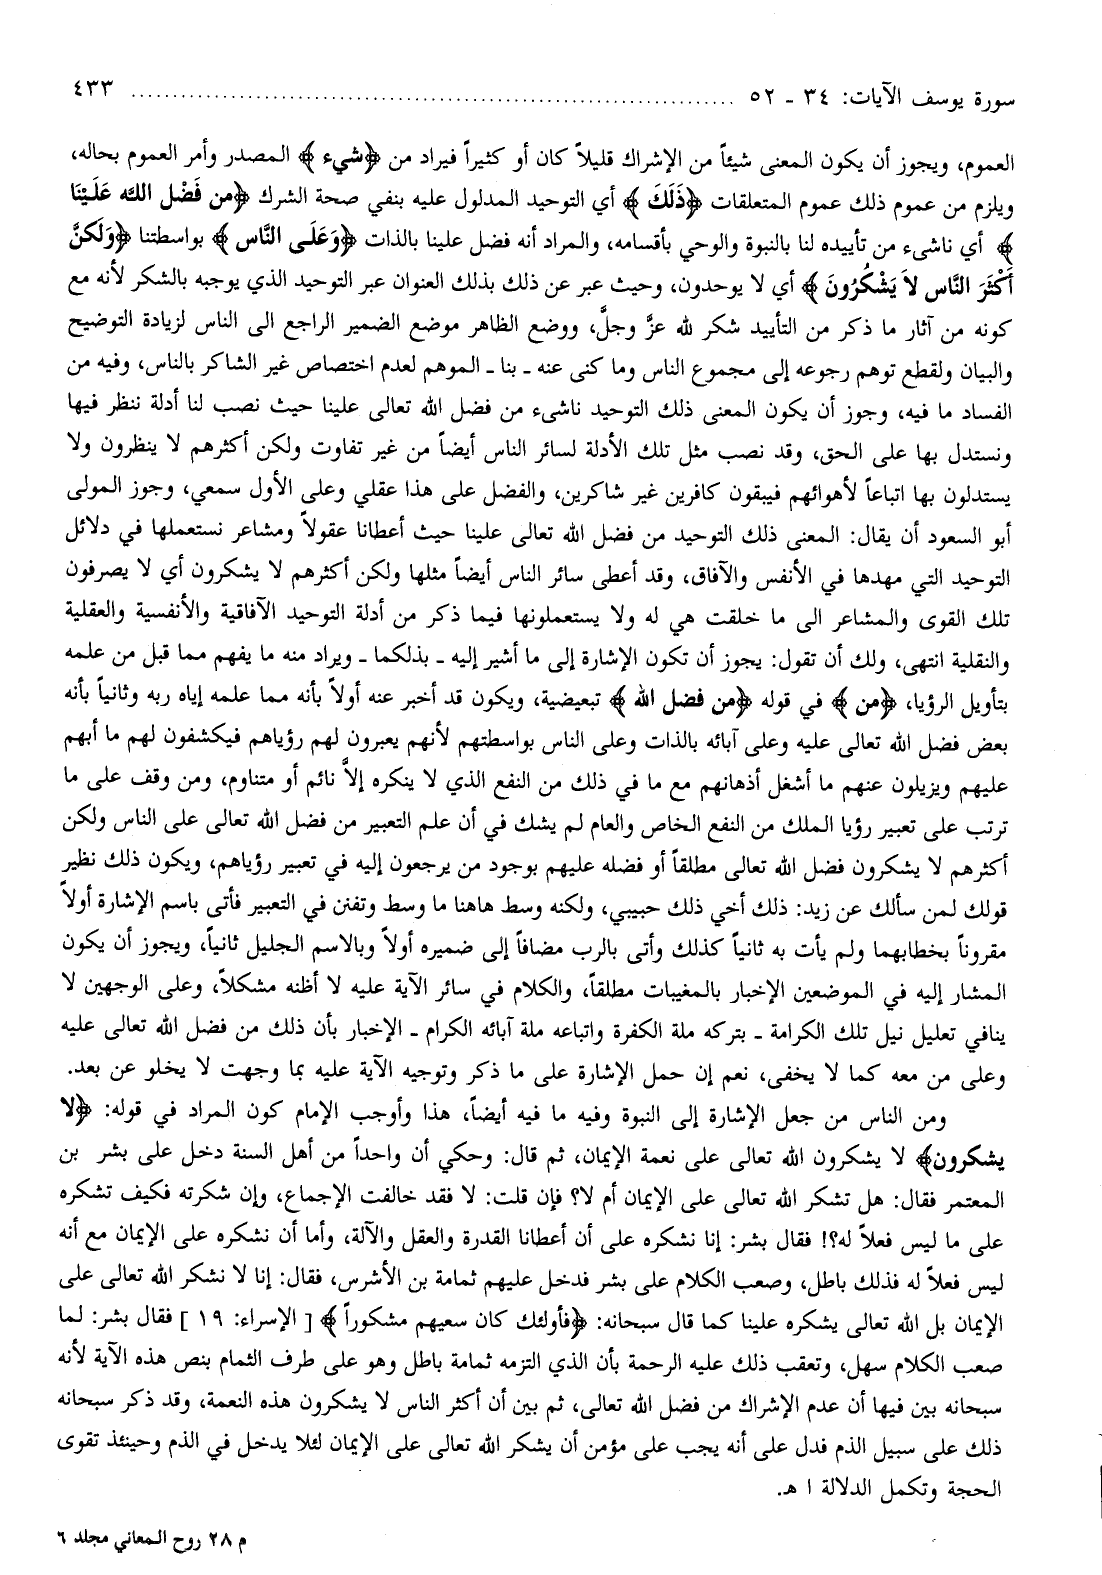 سورة يوسف الآيات: ٣٤ - ٥٢ ................................................ ٤٣٣
العموم، ويجوز أن يكون المعنى شيئاً من الإشراك قليلاً كان أو كثيراً فيراد من ﴿شيء﴾ المصدر وأمر العموم بحاله،
ويلزم من عموم ذلك عموم المتعلقات ﴿ذَلَكَ﴾ أي التوحيد المدلول عليه بنفي صحة الشرك ﴿من فَضْل اللَّه عَلَيْنَا
﴾ أي ناشىء من تأييده لنا بالنبوة والوحي بأقسامه، والمراد أنه فضل علينا بالذات ﴿وَعَلَى النَّاس﴾ بواسطتنا ﴿وَلَكنَّ
أَكْثَرَ النَّاس لاَ يَشْكُرُونَ﴾ أي لا يوحدون، وحيث عبر عن ذلك بذلك العنوان عبر التوحيد الذي يوجبه بالشكر لأنه مع
كونه من آثار ما ذكر من التأييد شكر لله عزَّ وجلَّ، ووضع الظاهر موضع الضمير الراجع الى الناس لزيادة التوضيح
والبيان ولقطع توهم رجوعه إلى مجموع الناس وما كنى عنه ـ بنا ـ الموهم لعدم اختصاص غير الشاكر بالناس، وفيه من
الفساد ما فيه، وجوز أن يكون المعنى ذلك التوحيد ناشىء من فضل الله تعالى علينا حيث نصب لنا أدلة ننظر فيها
ونستدل بها على الحق، وقد نصب مثل تلك الأدلة لسائر الناس أيضاً من غير تفاوت ولكن أكثرهم لا ينظرون ولا
يستدلون بها اتباعاً لأهوائهم فيبقون كافرين غير شاكرين، والفضل على هذا عقلي وعلى الأول سمعي، وجوز المولى
أبو السعود أن يقال: المعنى ذلك التوحيد من فضل الله تعالى علينا حيث أعطانا عقولاً ومشاعر نستعملها في دلائل
التوحيد التي مهدها في الأنفس والآفاق، وقد أعطى سائر الناس أيضاً مثلها ولكن أكثرهم لا يشكرون أي لا يصرفون
تلك القوى والمشاعر الى ما خلقت هي له ولا يستعملونها فيما ذكر من أدلة التوحيد الآفاقية والأنفسية والعقلية
والنقلية انتهى، ولك أن تقول: يجوز أن تكون الإشارة إلى ما أشير إليه ـ بذلكما ـ ويراد منه ما يفهم مما قبل من علمه
بتأويل الرؤيا، ﴿من﴾ في قوله ﴿من فضل الله﴾ تبعيضية، ويكون قد أخبر عنه أولاً بأنه مما علمه إياه ربه وثانياً بأنه
بعض فضل الله تعالى عليه وعلى آبائه بالذات وعلى الناس بواسطتهم لأنهم يعبرون لهم رؤياهم فيكشفون لهم ما أبهم
عليهم ويزيلون عنهم ما أشغل أذهانهم مع ما في ذلك من النفع الذي لا ينكره إلاَّ نائم أو متناوم، ومن وقف على ما
ترتب على تعبير رؤيا الملك من النفع الخاص والعام لم يشك في أن علم التعبير من فضل الله تعالى على الناس ولكن
أكثرهم لا يشكرون فضل الله تعالى مطلقاً أو فضله عليهم بوجود من يرجعون إليه في تعبير رؤياهم، ويكون ذلك نظير
قولك لمن سألك عن زيد: ذلك أخي ذلك حبيبي، ولكنه وسط هاهنا ما وسط وتفنن في التعبير فأتى باسم الإشارة أولاً
مقروناً بخطابهما ولم يأت به ثانياً كذلك وأتى بالرب مضافاً إلى ضميره أولاً وبالاسم الجليل ثانياً، ويجوز أن يكون
المشار إليه في الموضعين الإخبار بالمغيبات مطلقاً، والكلام في سائر الآية عليه لا أظنه مشكلاً، وعلى الوجهين لا
ينافي تعليل نيل تلك الكرامة ـ بتركه ملة الكفرة واتباعه ملة آبائه الكرام ـ الإخبار بأن ذلك من فضل الله تعالى عليه
وعلى من معه كما لا يخفى، نعم إن حمل الإشارة على ما ذكر وتوجيه الآية عليه بما وجهت لا يخلو عن بعد.
ومن الناس من جعل الإشارة إلى النبوة وفيه ما فيه أيضاً، هذا وأوجب الإمام كون المراد في قوله: ﴿لا
يشكرون﴾ لا يشكرون الله تعالى على نعمة الإيمان، ثم قال: وحكي أن واحداً من أهل السنة دخل على بشر بن
المعتمر فقال: هل تشكر الله تعالى على الإيمان أم لا؟ فإن قلت: لا فقد خالفت الإجماع، وإن شكرته فكيف تشكره
على ما ليس فعلاً له؟! فقال بشر: إنا نشكره على أن أعطانا القدرة والعقل والآلة، وأما أن نشكره على الإيمان مع أنه
ليس فعلاً له فذلك باطل، وصعب الكلام على بشر فدخل عليهم ثمامة بن الأشرس، فقال: إنا لا نشكر الله تعالى على
الإيمان بل الله تعالى يشكره علينا كما قال سبحانه: ﴿فأولئك كان سعيهم مشكوراً﴾ [ الإسراء: ١٩ ] فقال بشر: لما
صعب الكلام سهل، وتعقب ذلك عليه الرحمة بأن الذي التزمه ثمامة باطل وهو على طرف الثمام بنص هذه الآية لأنه
سبحانه بين فيها أن عدم الإشراك من فضل الله تعالى، ثم بين أن أكثر الناس لا يشكرون هذه النعمة، وقد ذكر سبحانه
ذلك على سبيل الذم فدل على أنه يجب على مؤمن أن يشكر الله تعالى على الإيمان لئلا يدخل في الذم وحينئذ تقوى
الحجة وتكمل الدلالة ا هـ.
م ٢٨ روح المعاني مجلد ٦